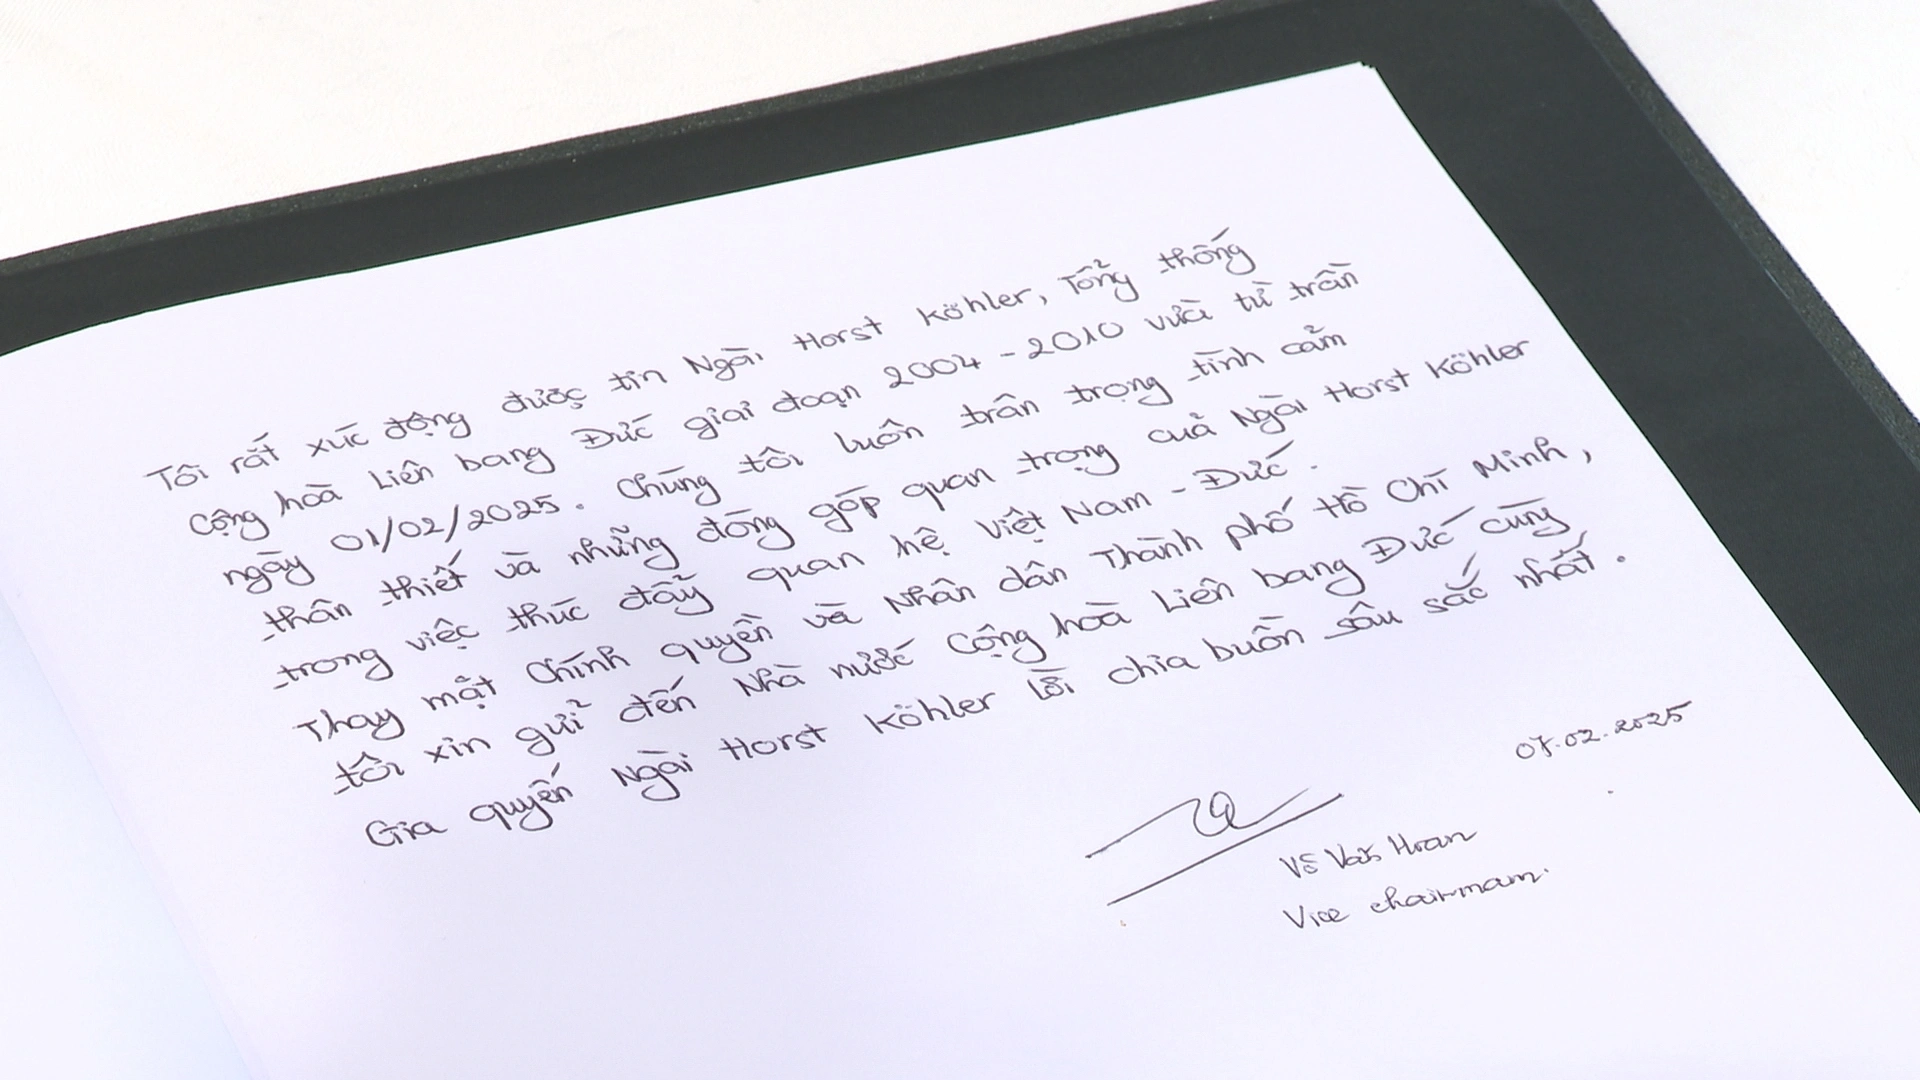 Tôi rất xúc động được tin Ngài Horst Köhler, Tổng thống
Cộng hoà Liên bang Đức giai đoạn 2004 - 2010 vừa từ trần
ngày 01/02/2025. Chúng tôi luôn trân trọng tình cảm
thân thiết và những đóng góp quan trọng của Ngài Horst Köhler
trong việc thúc đẩy quan hệ Việt Nam - Đức.
Thay mặt Chính quyền và Nhân dân Thành phố Hồ Chí Minh,
tôi xin gửi đến Nhà nước Cộng hoà Liên bang Đức cùng
Gia quyến Ngài Horst Köhler lời chia buồn sâu sắc nhất.
07.02.2025
Võ Văn Hoan
Vice chairman.